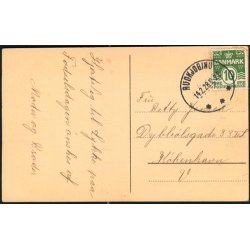 Hjertelig til Lykke paa
Fødselsdagen ønskes af
Moder og Broder
RUDKJØBING
14.2.28
DANMARK
10
Fru
Betty
Dybbølsgade
København
V.